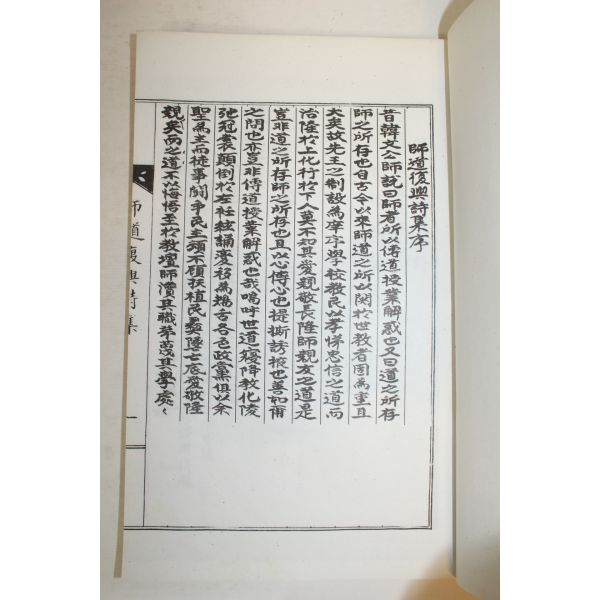 師道復興詩集序
昔韓文公師說曰師者所以傳道授業解惑也又曰道之所存
師之所存也自古今以來師道之所以関於世教者固為重且
大矣故先王之制設為庠序學校教民以孝悌忠信之道而
治隆於上化行於下人莫不知其愛親敬長隆師親友之道是
豈非道之所存師之所存也且以心傳心也提撕誘掖也善如爾
之問也亦豈非傳道授業解惑也哉嗚呼世道寢降教化陵
弛冠裳顛倒於左衽絃誦變移為鴃舌各色政黨俱以余
聖為主而徒事鬪爭民主類不顧扶植民彝墜亡底愛敬隆
親矣而之道不以悔悟至於教壇師瀆其職苹蔑其學處々
師道復興詩集
一